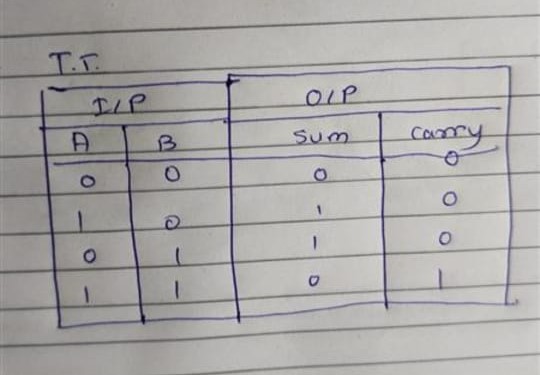 T.T.
I/P O/P
A B Sum Carry
0 0 0 0
1 0 1 0
0 1 1 0
1 1 0 1